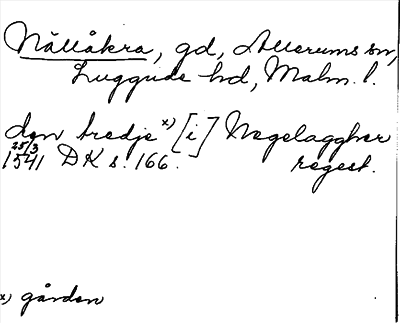 Nällåkra, gd, Allerums sn,
Luggude hd, Malm. l.
den tredje x) [i] Negelaggher
25/3
1541 DK s. 166. regest.
x) gården